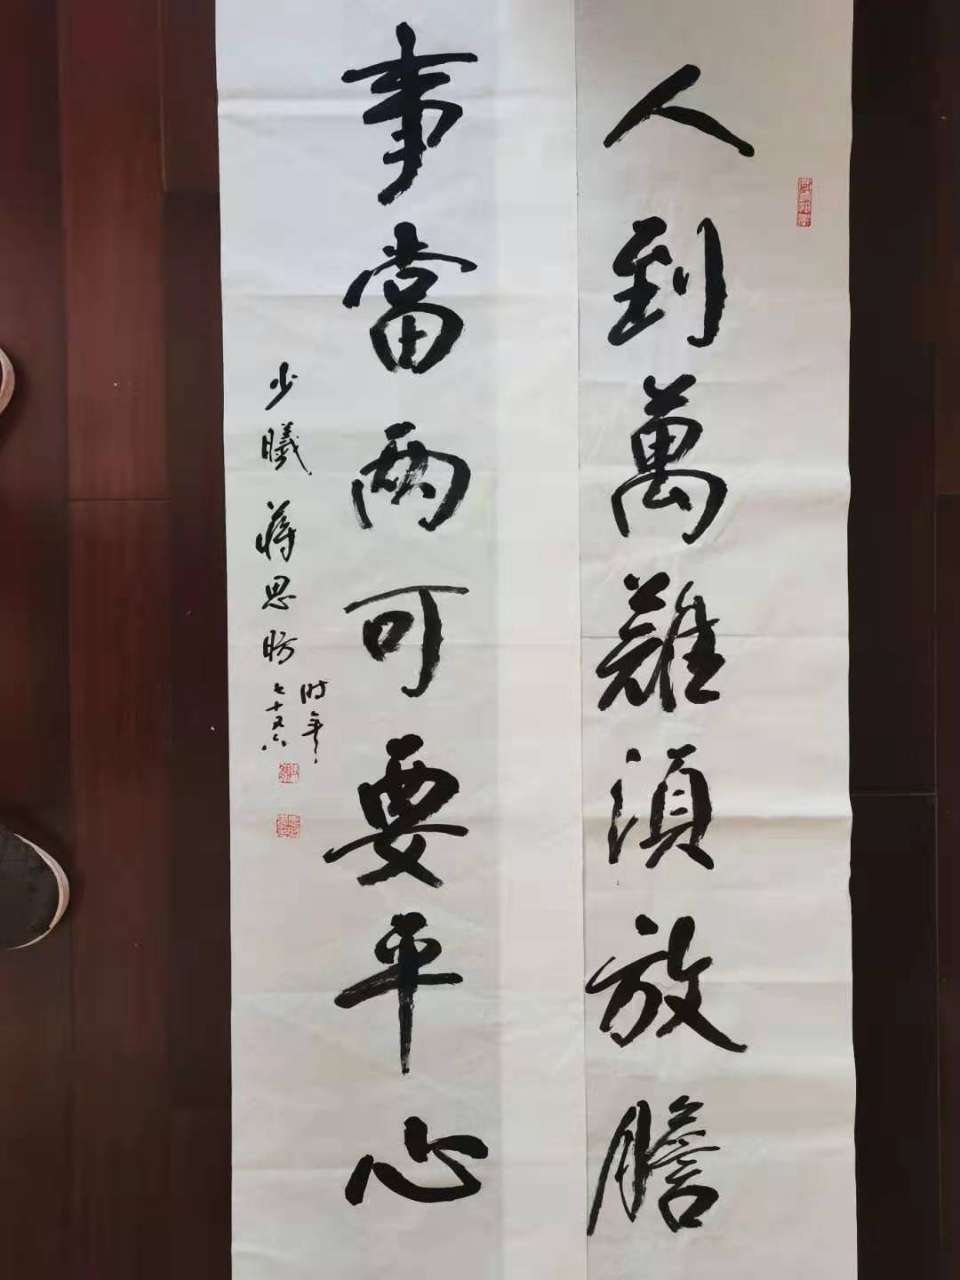 人到萬難須放膽
事當兩可要平心
少曦 蔣思昉
時年
七十又六